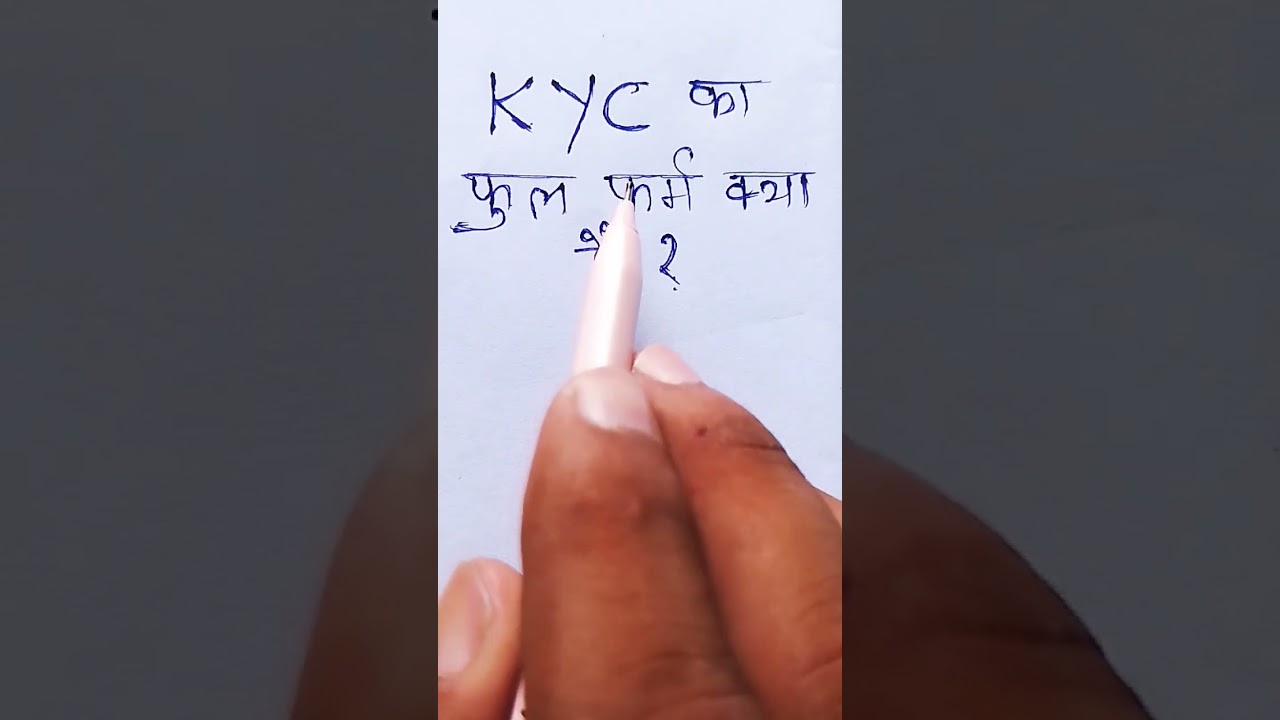 KYC का
फुल फर्म क्या
?